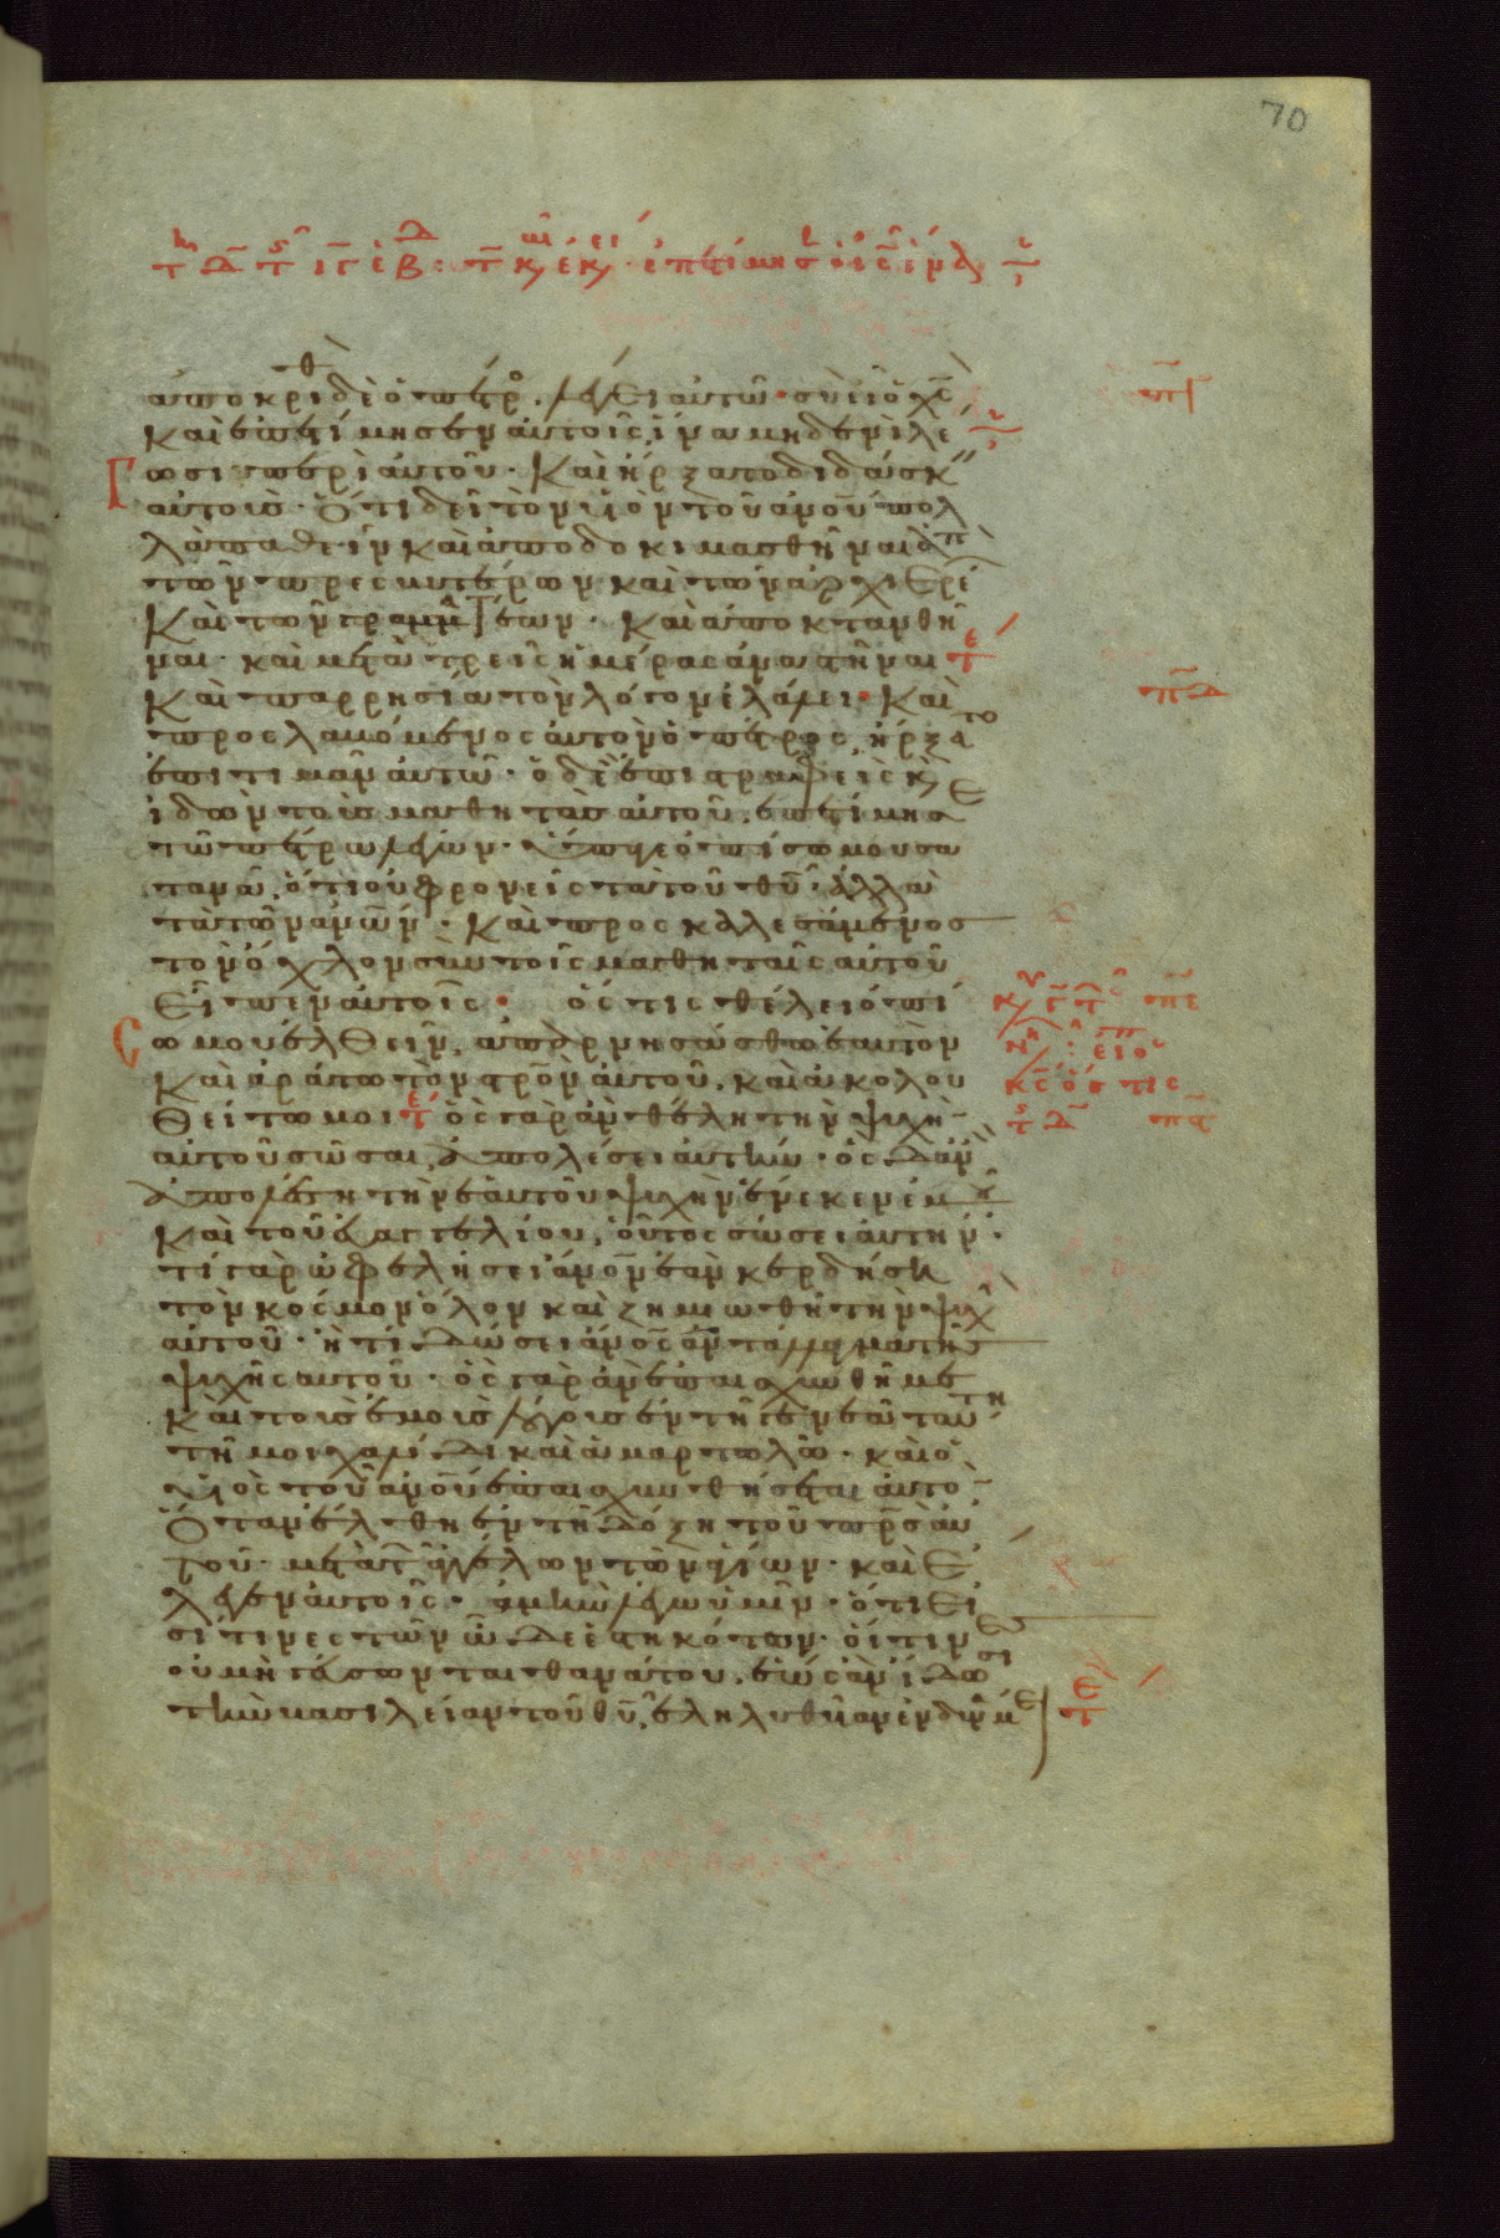 70
ἀποκριθ δὲ ὁ πέτρο λέγει αὐτῶ· σὺ εἶ ὁ χς
καὶ ἐπετίμησεν αὐτοῖς ἵνα μηδενὶ λέ
πγ
ωσι περὶ αὐτοῦ· Καὶ ἤρξατο διδάσκ
αὐτοὺς· Ὅτι δεῖ τὸν υἱὸν τοῦ ανου πολ
λὰ παθεῖν καὶ ἀποδοκιμασθῆναι ἀπὸ
τῶν πρεσβυτέρων καὶ τῶν ἀρχιερέ
Καὶ τῶν γραμματέων· Καὶ ἀποκτανθῆ
ναι· καὶ μετὰ τρεῖς ἡμέρας ἀναστῆναι τε
Καὶ παρρησία τὸν λόγον ἐλάλει· Καὶ
πδ
προσλαβόμενος αὐτὸν ὁ πέτρος, ἤρξατο
ἐπιτιμᾶν αὐτῶ· ὁ δὲ ἐπιστραφεὶς κὶ
ἰδὼν τοὺς μαθητὰς αὐτοῦ, ἐπετίμησε
τῶ πέτρω λέγων· ὕπαγε ὀπίσω μου σα
τανᾶ, ὅτι οὐ φρονεῖς τὰ τοῦ θυ· ἀλλὰ
τὰ τῶν ανων· Καὶ προσκαλεσάμενος
τὸν ὄχλον σὺν τοῖς μαθηταῖς αὐτοῦ
Εἶπεν αὐτοῖς· ὅστις θέλει ὀπί
πε
σω μου ἐλθεῖν, ἀπαρνησάσθω ἑαυτὸν
Καὶ ἀράτω τὸν στρον αὐτοῦ, καὶ ἀκολου
ὅστις
θείτω μοι τε ὃς γὰρ ἂν θέλη τὴν ψυχὴ
πς
αὐτοῦ σῶσαι, ἀπολέσει αὐτήν· ὃς δ' ἂν
ἀπολέση τὴν ἑαυτοῦ ψυχὴν ἕνεκεν ἐμ
Καὶ τοῦ εὐαγγελίου, οὗτος σώσει αὐτήν·
τί γὰρ ὠφελήσει ανον ἐὰν κερδήση
τὸν κόσμον ὅλον καὶ ζημιωθῆ τὴν ψυχ
αὐτοῦ· ἢ τί δώσει ανος ἀντάλλαγμα τῆς
ψυχῆς αὐτοῦ· ὃς γὰρ ἂν ἐπαισχυνθῆ με
Καὶ τοὺς ἐμοὺς λόγους ἐν τῆ γενεᾶ ταύτη
τῆ μοιχαλίδι καὶ ἁμαρτωλῶ· καὶ ὁ
υἱὸς τοῦ ανου ἐπαισχυνθήσεται αὐτὸ
Ὅταν ἔλθη ἐν τῆ δόξη τοῦ πρς αὐ
τοῦ· μετὰ τ ἀγγέλων τῶν ἁγίων· καὶ ἔ
λεγεν αὐτοῖς· ἀμὴν λέγω ὑμῖν· ὅτι εἰ
σί τινες τῶν ὧδε ἑστηκότων· οἵτινες
οὐ μὴ γεύσωνται θανάτου, ἕως ἂν ἴδωσι
τὴν βασιλείαν τοῦ θυ, ἐληλυθῆαν ἐν δυνάμε τε